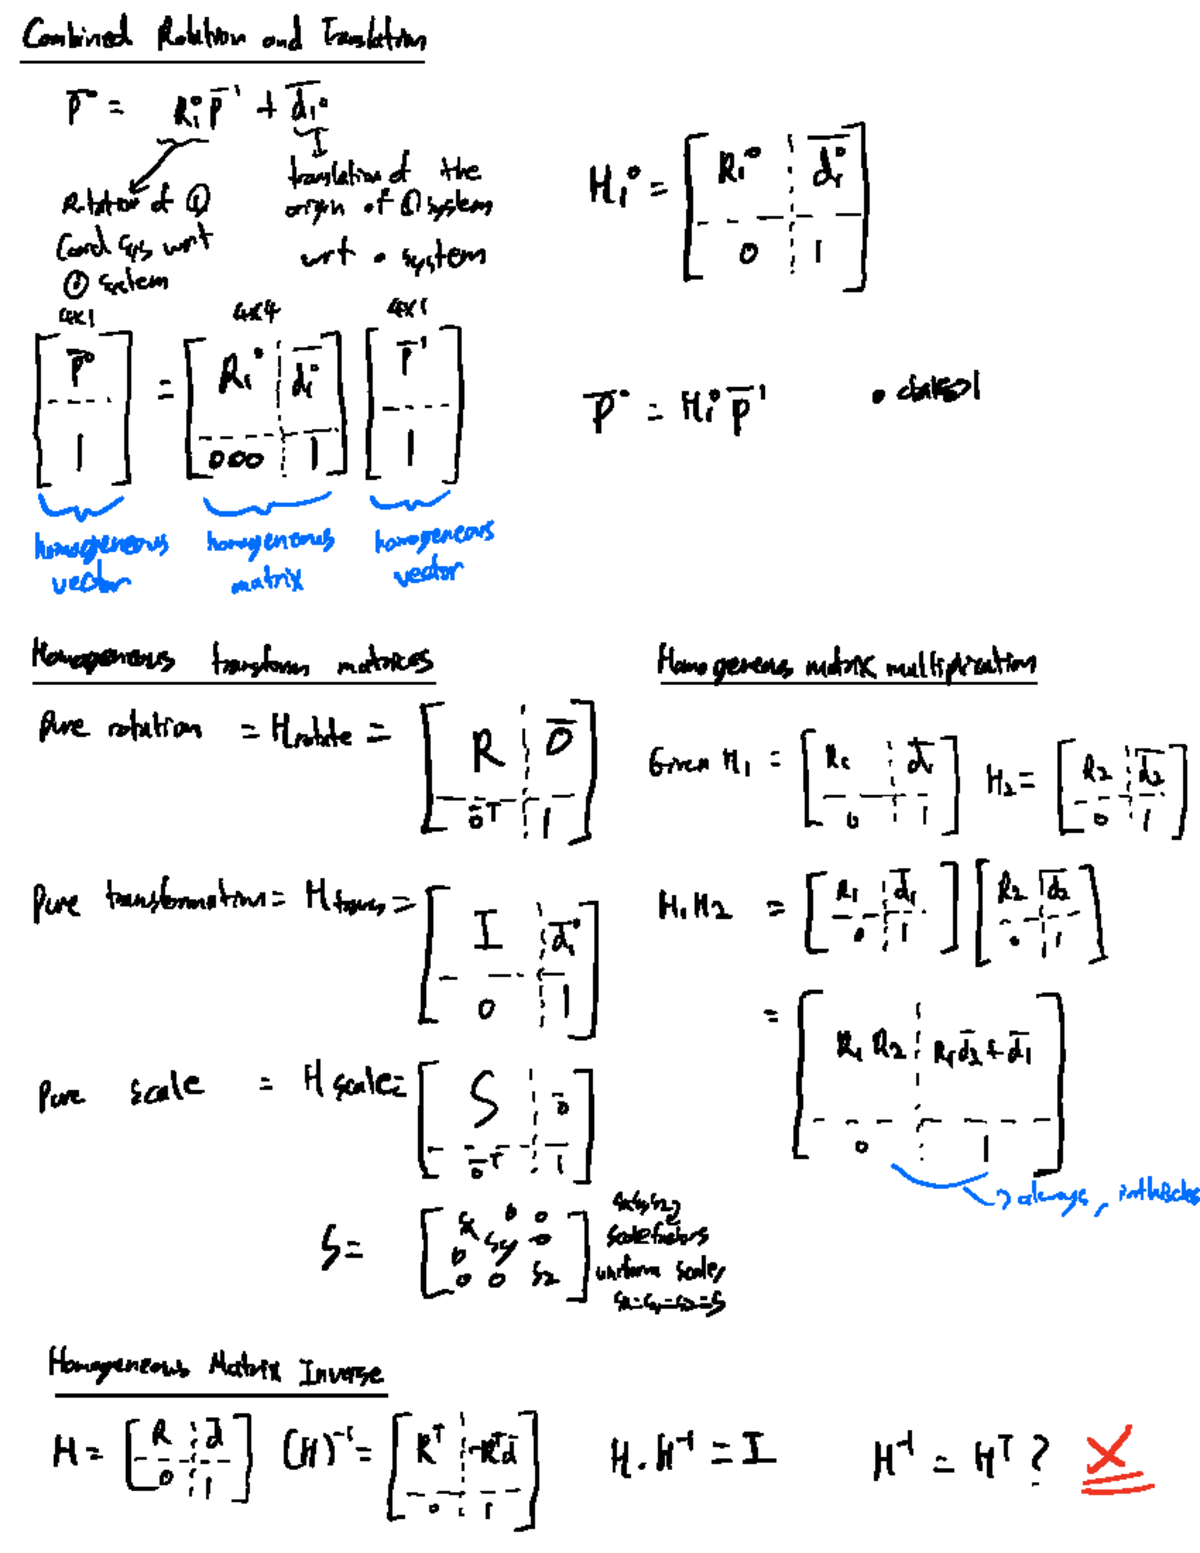 Combined Rotation and Translation
P̄⁰ = R₁⁰ P̄¹ + d̄₁⁰
Rotation of ① coord sys wrt ⓪ system
translation of the origin of ① system wrt 0 system
H₁⁰ = [ R₁⁰ ¦ d̄₁⁰ ; 0 ¦ 1 ]
4x1 4x4 4x1
[ P̄⁰ ; 1 ] = [ R₁⁰ ¦ d̄₁⁰ ; 000 ¦ 1 ] [ P̄¹ ; 1 ]
homogeneous vector
homogeneous matrix
homogeneous vector
P̄⁰ = H₁⁰ P̄¹
Homogeneous transform matrices
Pure rotation = Hrotate = [ R ¦ 0̄ ; 0̄ᵀ ¦ 1 ]
Pure transformation = Htrans = [ I ¦ d̄₁⁰ ; 0 ¦ 1 ]
Pure scale = Hscale = [ S ¦ 0̄ ; 0̄ᵀ ¦ 1 ]
S = [ sx 0 0 ; 0 sy 0 ; 0 0 sz ]
sx, sy, sz,
scale factors
uniform scale,
sx=sy=sz=s
Homogenous matrix multiplication
Given H₁ = [ R₁ ¦ d̄₁ ; 0 ¦ 1 ] H₂ = [ R₂ ¦ d̄₂ ; 0 ¦ 1 ]
H₁H₂ = [ R₁ ¦ d̄₁ ; 0 ¦ 1 ] [ R₂ ¦ d̄₂ ; 0 ¦ 1 ]
= [ R₁R₂ ¦ R₁d̄₂ + d̄₁ ; 0 ¦ 1 ]
always,
Homogeneous Matrix Inverse
H = [ R ¦ d̄ ; 0 ¦ 1 ] (H)⁻¹ = [ Rᵀ ¦ -Rᵀd̄ ; 0 ¦ 1 ] H . H⁻¹ = I H⁻¹ = Hᵀ ? X